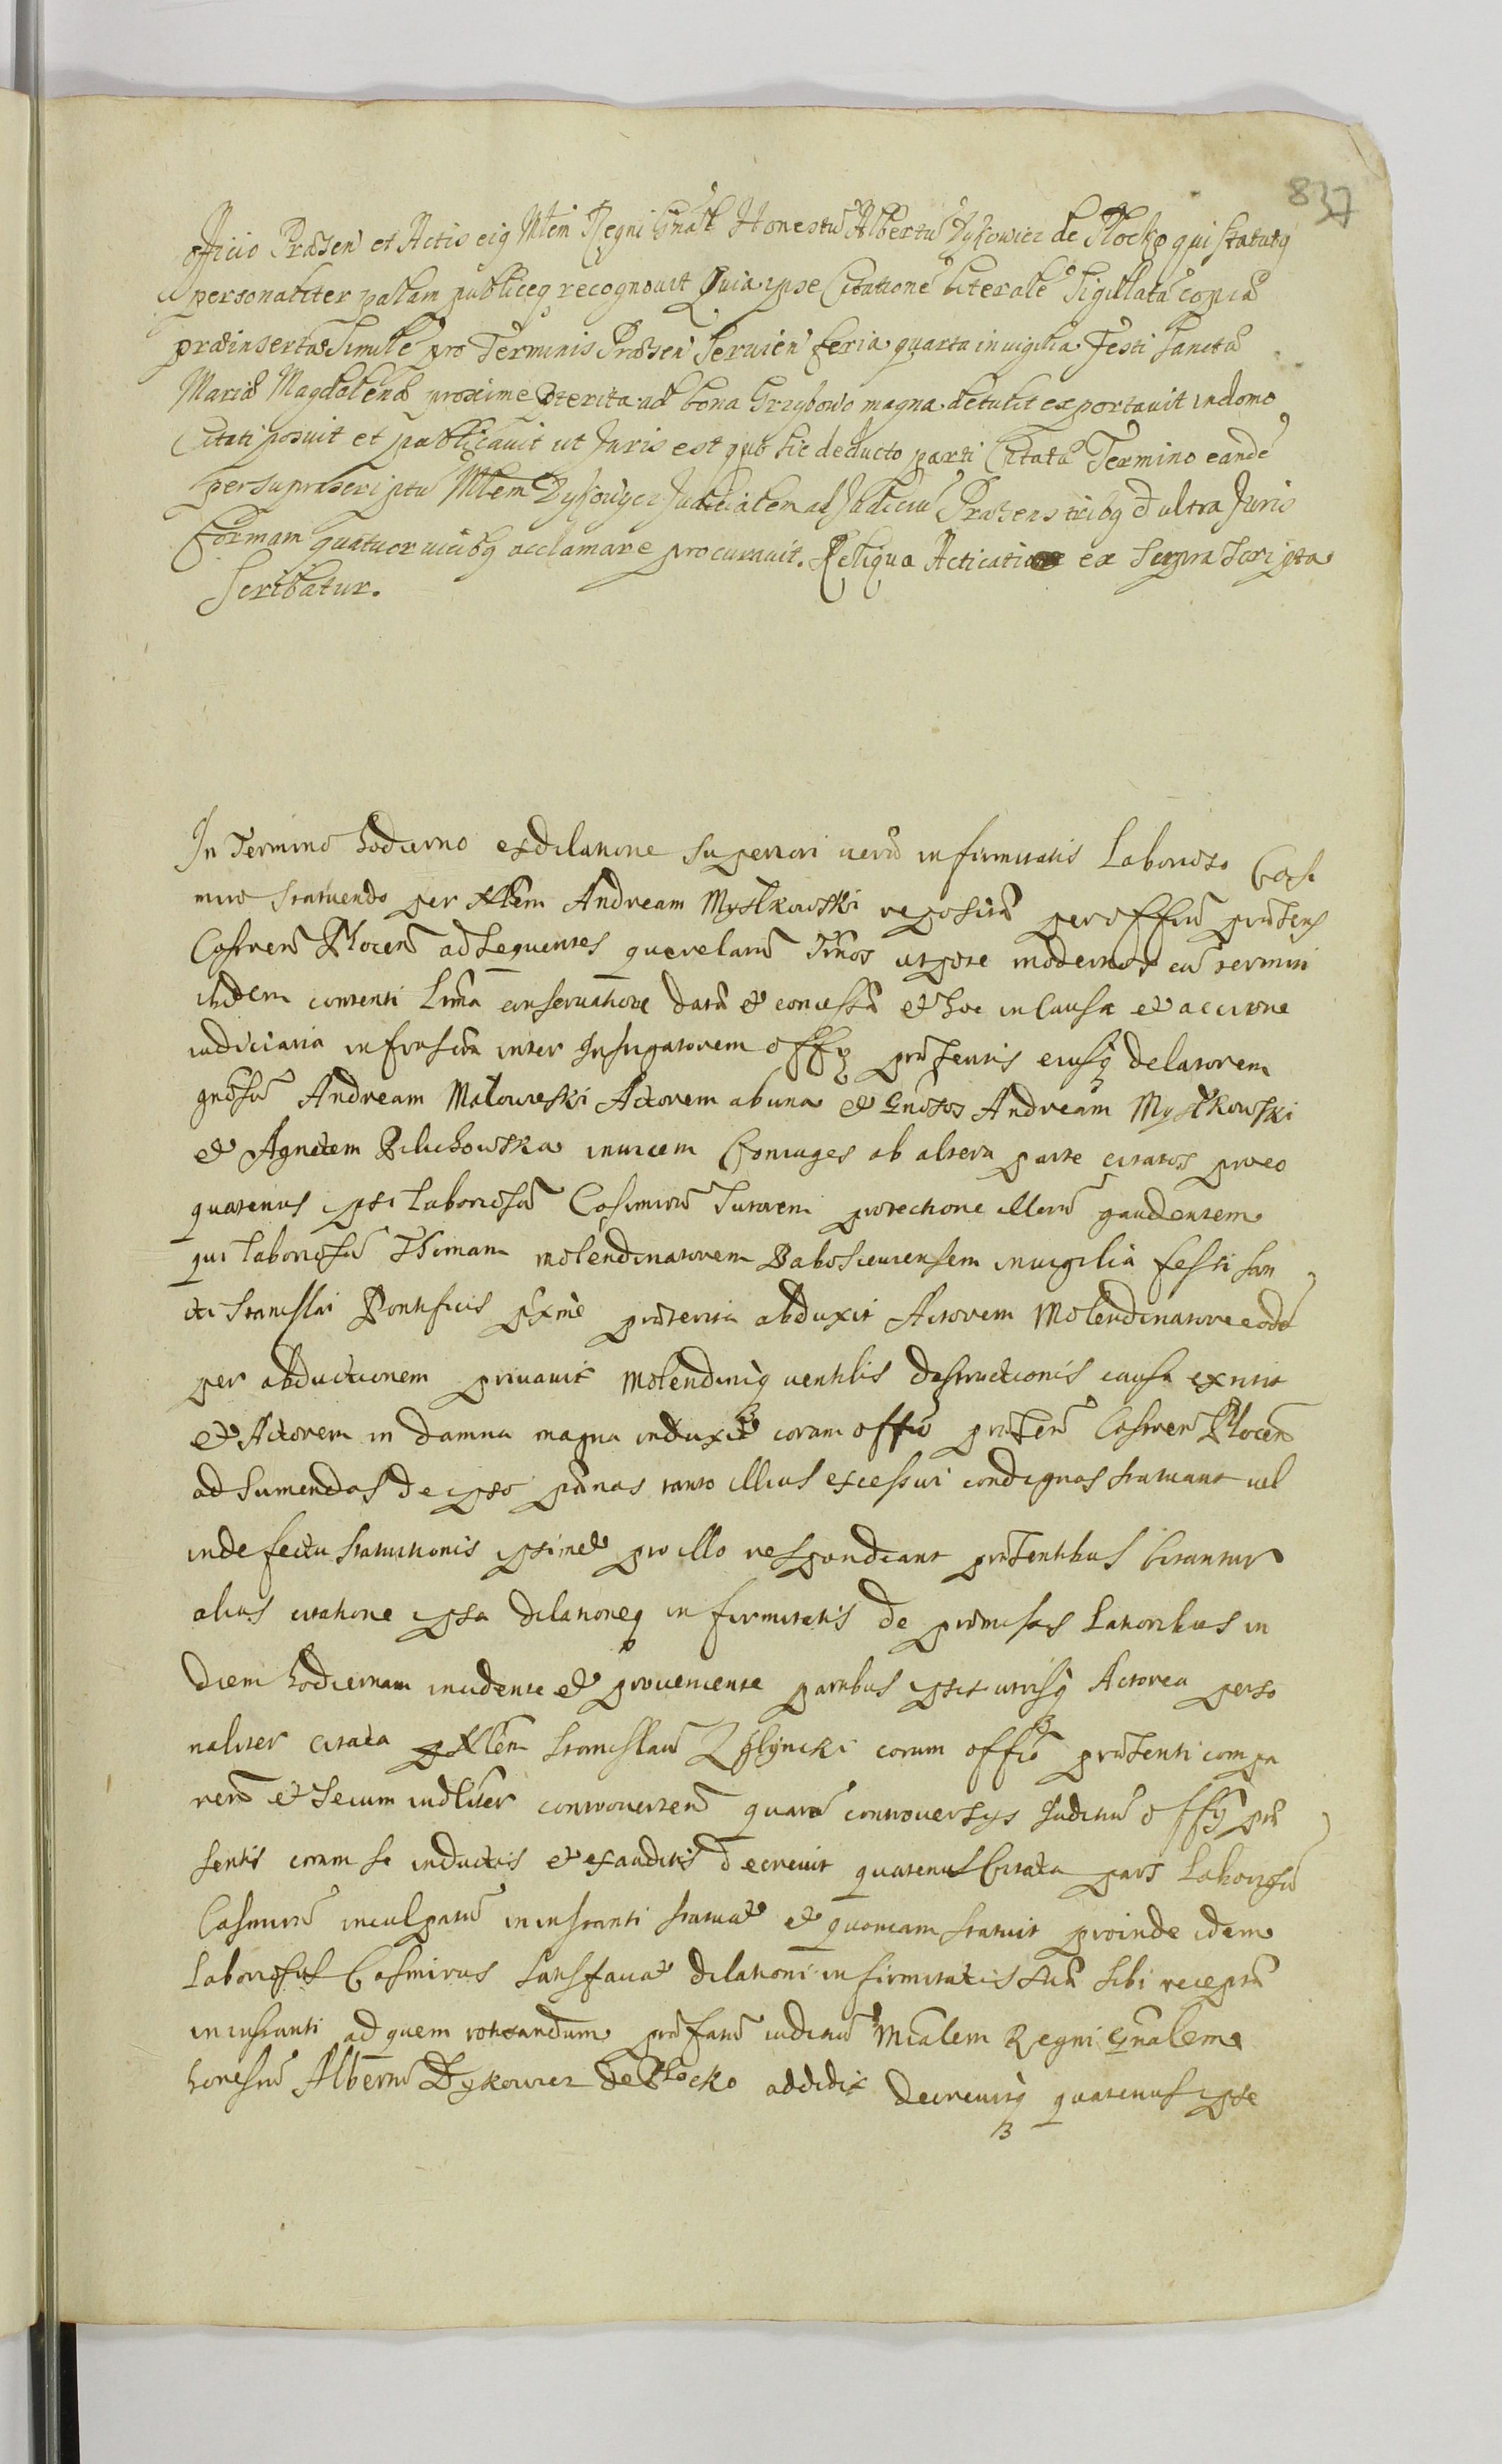 837
officio Præsen et Actis eiq Mlem Regni Gnal Honestu Albertu Dykowicz de Plocko qui statutq
personaliter palam publiceq recognovit Quia ipse Citatione literale Sigillata copia
præinserta Simile pro Terminis Præsen Servien feria quarta in vigilia Festi Sancta
Mariæ Magdalenæ proxime pterita ad bona Grzybowo magna detulit exportavit in domo
Citati posuit et publicavit ut Juris est quo sic deducto parti Citata Termino eande
per supra scriptu Mlem Dykowycz Judicialem ad Judiciu Præsens tribq ultra Juris
formam quatuor vicibq acclamare procuravit. Reliqua Acticatio ex Supra Scripta
Scribatur.
In Termino hodierno ex dilatione superiori vera infirmitatis Laborioso Casi
miro statuendo per Mlem Andream Mystkowski reposita per offium præsens
Castren Plocen ad sequentes querelaru Tmos utpote modernos cu termini
ibidem contenti Lima conservatione data et concessa et hoc in Causa et actione
iudiciaria infrascra inter Instigatorem offy præsentis eiusq delatorem
gnosu Andream Malowieski Actorem ab una et Gnosos Andream Mystkowski
et Agnetem Pilichowska invicem Coniuges ab altera parte citatos pro eo
quatenus ipsi laboriosu Casimiru Sutorem protectione illoru gaudentem
qui laboriosu Thomam molendinatorem Babosieviensem in vigilia festi san
cti Stanislai Pontificis pxime præterita abduxit Actorem Molendinatore eode
per abductionem privavit molendiniq ventilis destructionis causa extitit
et Actorem in damna magna induxit coram offio præsen Castren Plocen
ad sumendas de ipso pænas tanto illius excessui condignas statuant vel
in defectu statuitionis ipsimet pro illo respondeant præsentibus Citantur
alias citatione ipsa dilationeq infirmitatis de præmissis Latioribus in
diem hodiernam incidente et proveniente partibus ipsis utrisq Actorea perso
naliter citata p Mlem Stanislau Zglynicki coram offio præsenti compa
ren et secum iudlter controverten quaru controversys Judiciu offy præ
sentis coram se inductis et exauditis decrevit quatenus Citata pars Laboriosu
Casimiru inculpatu in instanti statuat et quoniam statuit proinde idem
Laboriosus Casimirus satisfaciat dilationi infirmitatis sua sibi recepta
in instanti ad quem rotisandum præfatu iudiciu Mialem Regni Gnalem
honestu Albertu Dykowicz de Plocko addidit decrevitq quatenus ipse